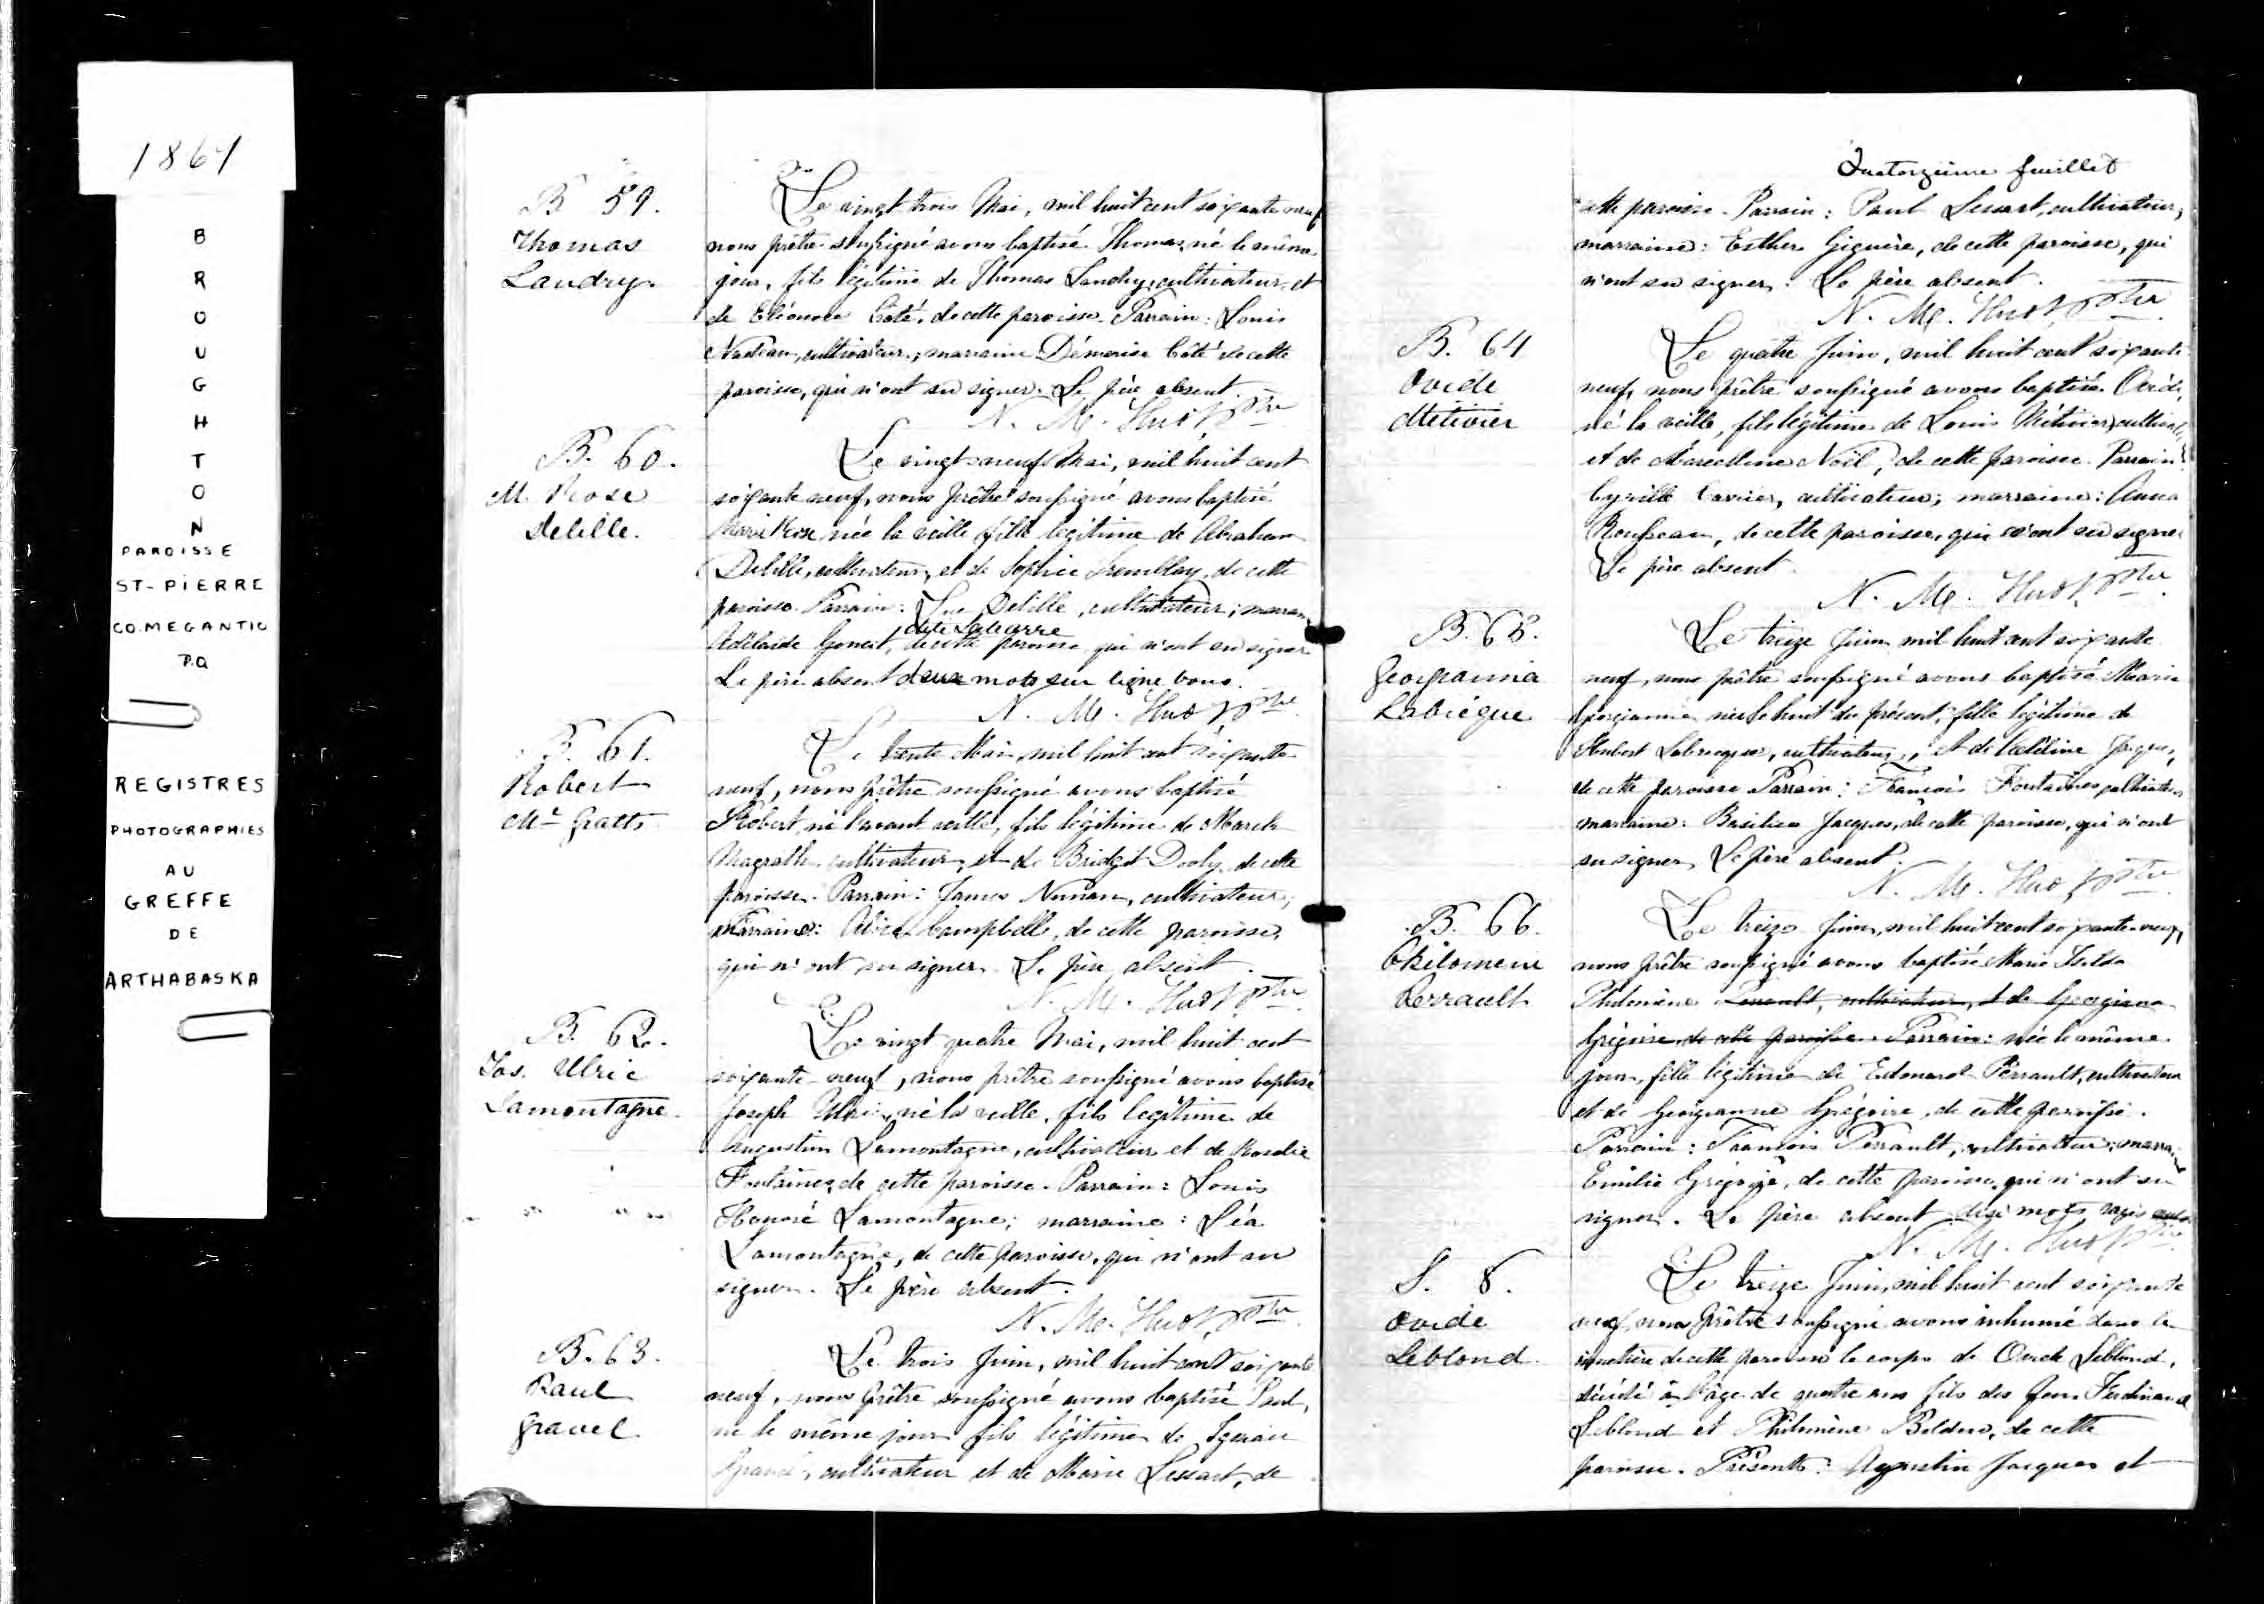 1869
BROUGHTON
PAROISSE
ST-PIERRE
CO. MEGANTIC
P.Q
REGISTRES
PHOTOGRAPHIES
AU
GREFFE
DE
ARTHABASKA
B 59.
Thomas
Landry
Le vingt trois Mai, mil huit cent soixante neuf
nous prêtre soussigné avons baptisé Thomas, né le même
jour, fils légitime de Thomas Landry, cultivateur, et
de Eléonore Côté, de cette paroisse. Parrain: Louis
Nadeau, cultivateur; marraine Démerise Côté de cette
paroisse, qui n'ont su signer. Le père absent.
N. M. Huot Ptre
B. 60.
M. Rose
Delille.
Le vingt neuf Mai, mil huit cent
soixante neuf, nous prêtre soussigné avons baptisé
Marie Rose née la veille fille légitime de Abraham
Delille, cultivateur, et de Sophie Tremblay, de cette
paroisse. Parrain: Luc Delille, cultivateur; marraine
dite Labarre
Adélaïde Goneat, de cette paroisse qui n'ont su signer
Le père absent deux mots sur ligne bons.
N. M. Huot Ptre
B. 61.
Robert
Mc Gratts
Le trente Mai, mil huit cent soixante
neuf, nous prêtre soussigné avons baptisé
Robert, né l'avant veille, fils légitime de Mark
Magrath, cultivateur, et de Bridget Dooly, de cette
paroisse. Parrain: James Nunan, cultivateur;
Marraine: Campbelle, de cette paroisse,
qui n'ont su signer. Le père absent.
N. M. Huot Ptre
B. 62.
Jos. Ulric
Lamontagne.
Le vingt quatre Mai, mil huit cent
soixante-neuf, nous prêtre soussigné avons baptisé
Joseph Ulric, né la veille, fils légitime de
Augustin Lamontagne, cultivateur et de Rosalie
Fontaine, de cette paroisse. Parrain: Louis
Honoré Lamontagne; marraine: Léa
Lamontagne, de cette paroisse, qui n'ont su
signer. Le père absent.
N. M. Huot Ptre
B. 63.
Paul
Gravel
Le trois Juin, mil huit cent soixante
neuf, nous prêtre soussigné avons baptisé Paul,
né le même jour fils légitime de
Gravel, cultivateur et de Marie Lessart, de
Quatorzième feuillet
cette paroisse. Parrain: Paul Lessart, cultivateur;
marraine: Esther Giguère, de cette paroisse, qui
n'ont su signer. Le père absent.
N. M. Huot Ptre
B. 64
Ovide
Métivier
Le quatre Juin, mil huit cent soixante
neuf, nous prêtre soussigné avons baptisé Ovide,
né la veille, fils légitime de Louis Métivier, cultivat
et de Marcelline Noël, de cette paroisse. Parrain:
Cyrille Carrier, cultivateur; marraine: Anna
Rousseau, de cette paroisse, qui n'ont su signer
Le père absent.
N. M. Huot Ptre
B. 65.
Georgianna
Labrègue
Le treize Juin mil huit cent soixante
neuf, nous prêtre soussigné avons baptisé Marie
Georgianna née le huit du présent, fille légitime de
Hubert Labrecque, cultivateur, et de Jacques,
de cette paroisse Parrain: François Fontaine, cultivateur
marraine: Basilisse Jacques, de cette paroisse, qui n'ont
su signer. Le père absent.
N. M. Huot Ptre
B. 66.
Philomene
Perrault
Le treize Juin, mil huit cent soixante-neuf,
nous prêtre soussigné avons baptisé Marie
Philomène Perrault, cultivateur, et de Georgiana
Grégoire de cette paroisse. Parrain: née le même
jour, fille légitime de Edouard Perrault, cultivateur
et de Georgianne Grégoire, de cette paroisse.
Parrain: François Perrault, cultivateur; marraine
Emilie Grégoire, de cette paroisse, qui n'ont su
signer. Le père absent dix mots rayés nuls
N. M. Huot Ptre
S. 8.
Ovide
Leblond.
Le treize Juin, mil huit cent soixante
neuf, nous prêtre soussigné avons inhumé dans le
cimetière de cette paroisse le corps de Ovide Leblond,
décédé à l'âge de quatre ans fils de Ferdinand
Leblond et Philomène Bolduc, de cette
paroisse. Présents: Augustin Jacques et